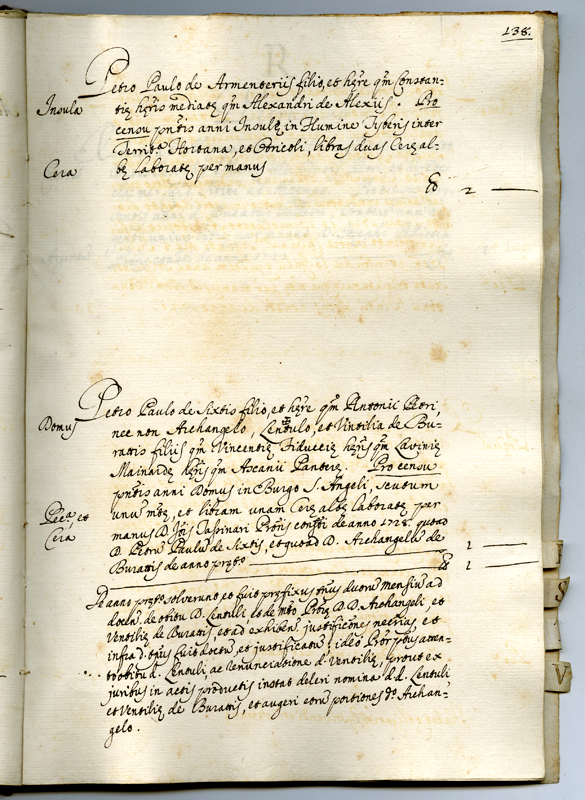 138.
Petro Paulo de Armenteriis filio, et hęre qm Constan-
Insula
tię hęris mediatę qm Alexandri de Alexiis. Pro
censu pntis anni Insulę in Flumine Tyberis inter
Territa Hortana, et Otricoli, libras duas Cerę al-
Cera
bę laboratę per manus
2
Petro Paulo de Sixtis filio, et hęre qm Antonii Petri,
Domus
nec non Archangelo, Lentulo, et Vintilia de Bu-
rattis filiis qm Vincentię Fiduccię hęris qm Lavinię
Mainardę hęris qm Ascanii Panterę. Pro censu
pntis anni Domus in Burgo S. Angeli, scutum
Pec.a et
unu mtę, et libram unam Cerę albę laboratę per
Cera
manus D. Jois Tassinari Pronis constti de anno 1728. quoad
D. Petru Paulu de Sixtis, et quoad D. Archangelu de
1
Burattis de anno prto
1
De anno prto solverunt, et fuit pręfixus tnus duoru mensiu ad
docen. de obitu D. Lentuli, et de mto Pronis D. D. Archangeli, et
Ventilię de Burattis, et ad exhiben. justificones necrias, et
infra d. tpus fuit doctu, et justificatu; ideo Pror ptus atten-
to obitu d. Lentuli, ac Renunciatione d. Ventilię, prout ex
juribus in actis productis instat deleri nomina d.d. Lentuli,
et Ventilię de Burattis, et augeri eoru portiones do Archan-
gelo.
S
V